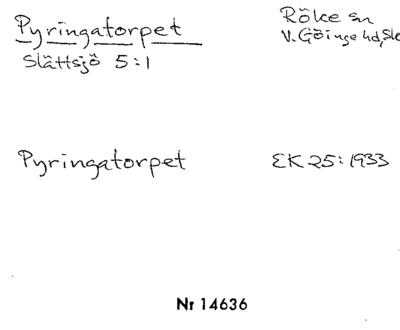 Pyringatorpet
Röke sn
Slättsjö 5:1
V. Göinge hd,
Pyringatorpet
EK 25:1933
Nr 14636